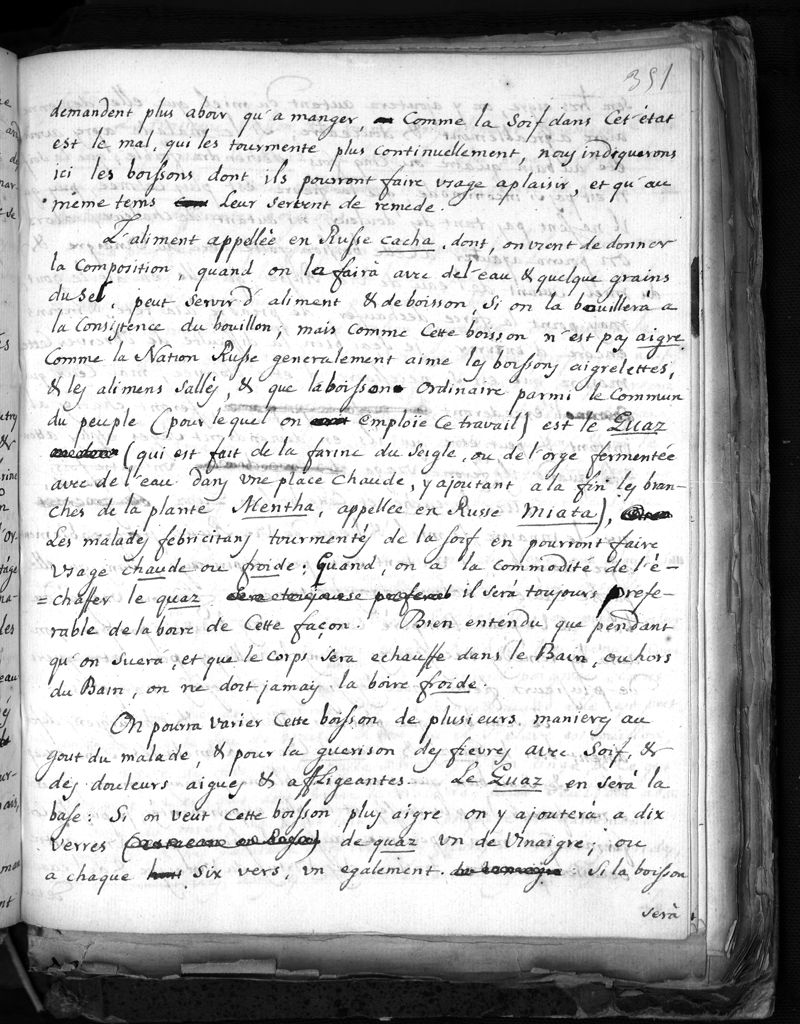 391
demandent plus aboir qu'a manger, Comme la Soif dans Cet état
est le mal, qui les tourmente plus Continuellement, nous indiquerons
ici les boissons dont ils pourront faire usage aplaisir, et qu'au
même tems Leur servent de remede.
L'aliment appellée en Russe cacha, dont, on vient de donner
la Composition, quand on la faira avec del'eau & quelque grains
du Sel, peut servir d'aliment & de boisson, Si on la bouillerà a
la Consistence du bouillon; mais comme Cette boisson n'est pas aigre.
Comme la Nation Russe generalement aime les boissons aigrelettes,
& les alimens Sallés, & que la boisson Ordinaire parmi le Commun
du peuple (pour lequel on emploie Ce travail) est le Quaz
(qui est fait de la farine du Seigle, ou de l'orge fermentée
avec de l'eau dans une place Chaude, y ajoutant a la fin les bran-
ches de la plante Mentha, appellée en Russe Miata),
Les malades febricitans tourmentés de la soif en pourront faire
usage chaude ou froide: Quand, on a la Commodité de l'é-
=chaffer le quaz il serà toujours prefe-
rable de la boire de Cette façon. Bien entendu que pendant
qu'on Suerà, et que le Corps Sera echauffe dans le Bain, ou hors
du Bain, on ne doit jamais la boire froide.
On pourra varier Cette boisson de plusieurs manieres au
gout du malade, & pour la guerison des fievres avec Soif, &
des douleurs aigues & affligeantes. Le Quaz en serà la
base: Si on veut Cette boisson plus aigre on y ajouterà a dix
verres de quaz un de Vinaigre; ou
a chaque Six vers, un egalement. Si la boisson
serà